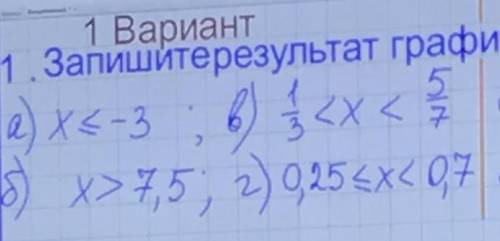 1 Вариант
1 . Запишитерезультат графи
а) x ≤ -3 ; в) 1/3 < x < 5/7
б) x > 7,5 ; г) 0,25 ≤ x < 0,7